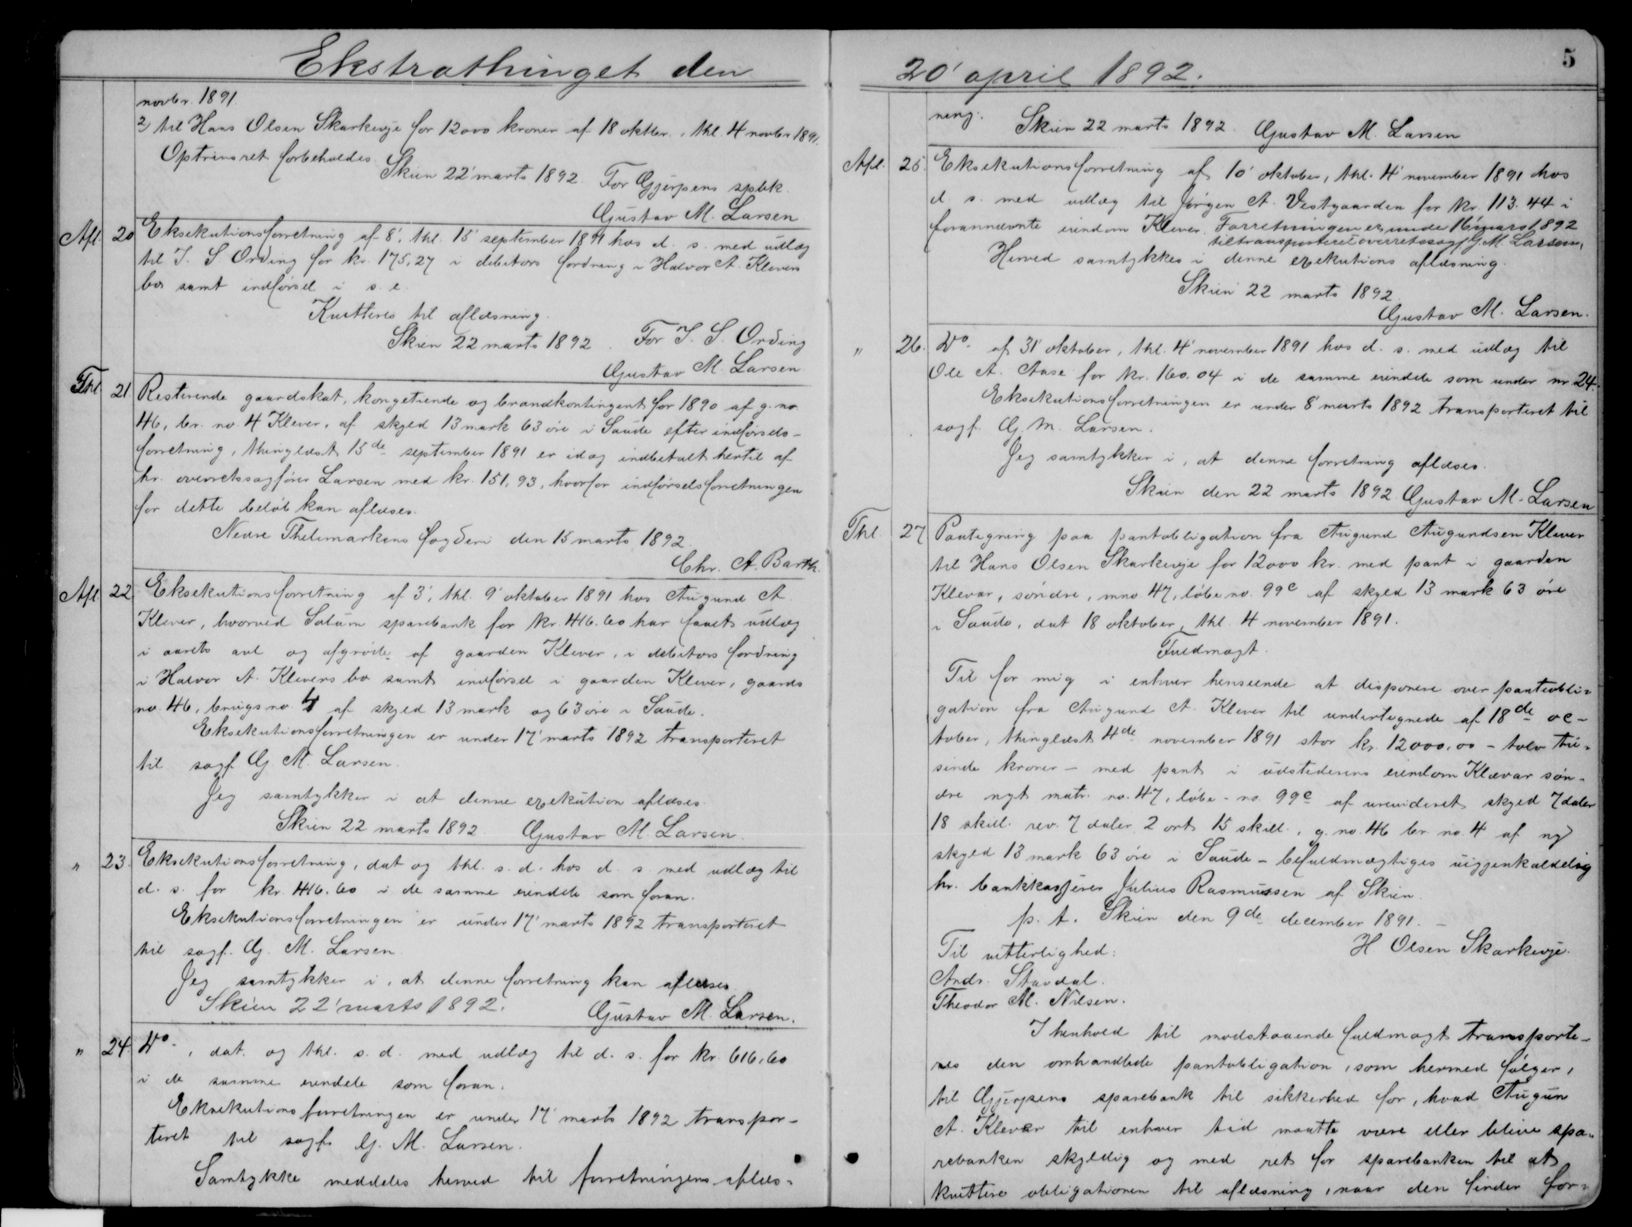 Ekstrathinget den
novbr. 1891
2, til Hans Olsen Skarkevje for 12000 kroner af 18 oktbr., thl. 4 novbr 1891.
Optrinsret forbeholdes.
Skien 22' marts 1892. For Gjerpens spbk.
Gustav M. Larsen
Afl. 20 Eksekutionsforretning af 8', thl. 15' september 1891 hos d. s. med udlæg
til I. S Ording for kr. 175,27 i debitors fordring i Halvor A. Klevers
bo samt indførsel i s. e.
Kvitteres til aflæsning.
Skien 22 marts 1892. For I. S. Ording
Gustav M. Larsen
Thl. 21 Resterende gaardskat, kongetiende og brandkontingent for 1890 af g. no
46, br. no. 4 Klever, af skyld 13 mark 63 øre i Saude efter indførsels-
forretning, thinglæst 15de september 1891 er idag indbetalt hertil af
hr. overretssagfører Larsen med kr. 151,93, hvorfor indførselsforretningen
for dette beløb kan aflæses.
Nedre Thelemarkens fogderi den 15 marts 1892.
Chr. A. Barth.
Afl. 22. Eksekutionsforretning af 3', thl. 9' oktober 1891 hos Augund A.
Klever, hvorved Solum sparebank for kr. 416.60 har faaet udlæg
i aarets avl og afgrøde af gaarden Klever, i debitors fordring
i Halvor A. Klevers bo samt indførsel i gaarden Klever, gaards
no. 46, brugsno 4 af skyld 13 mark og 63 øre i Saude.
Eksekutionsforretningen er under 17' marts 1892 transporteret
til sagf. G. M. Larsen.
Jeg samtykker i at denne exekution aflæses.
Skien 22 marts 1892 Gustav M. Larsen.
" 23. Eksekutionsforretning, dat og thl. s. d. hos d. s med udlæg til
d. s. for kr. 416.60 i de samme eiendele som foran.
Eksekutionsforretningen er under 17' marts 1892 transporteret
til sagf. G. M. Larsen.
Jeg samtykker i, at denne forretning kan aflæses.
Skien 22' marts 1892.
Gustav M. Larsen.
" 24. Do. , dat. og thl. s. d. med udlæg til d. s. for kr. 616,60
i de samme eiendele som foran.
Eksekutionsforretningen er under 17' marts 1892 transpor-
teret til sagf. G. M. Larsen.
Samtykke meddeles herved til forretningens aflæs-
20' april 1892.
5
ning.
Skien 22 marts 1892. Gustav M. Larsen
Afl. 25. Eksekutionsforretning af 10' oktober, thl. 4' november 1891 hos
d s. med udlæg til Jørgen A. Vestgaarden for kr. 113.44 i
forannævnte eiendom Klever. Forretningen er under 16' marts 1892
tiltransporteret overretssagf. G. M. Larsen.
Herved samtykkes i denne exekutions aflæsning.
Skien 22 marts 1892
Gustav M. Larsen.
" 26. Do. af 31' oktober, thl. 4' november 1891 hos d. s. med udlæg til
Ole A. Aase for kr. 160.04 i de samme eiendele som under nr 24.
Eksekutionsforretningen er under 8' marts 1892 transporteret til
sagf. G. M. Larsen.
Jeg samtykker i, at denne forretning aflæses.
Skien den 22 marts 1892 Gustav M. Larsen
Thl. 27 Paategning paa pantobligation fra Augund Augundsen Klever
til Hans Olsen Skarkevje for 12000 kr. med pant i gaarden
Klevar, søndre, mno 47, løbe no. 99c af skyld 13 mark 63 øre
i Saude, dat 18 oktober, thl. 4 november 1891.
Fuldmagt.
Til for mig i enhver henseende at disponere over pantobli-
gation fra Augund A. Klever til undertegnede af 18de oc-
tober, thinglæst 4de november 1891 stor kr. 12000,00 - tolv tu-
sinde kroner - med pant i udstederens eiendom Klævar søn-
dre nyt matr. no. 47, løbe-no. 99c af urevideret skyld 7 daler
18 skill. rev. 7 daler 2 ort 15 skill., g. no. 46 br. no. 4 af ny
skyld 13 mark 63 øre i Saude - befuldmægtiges uigjenkaldelig
hr. bankkasserer Julius Rasmussen af Skien.
p. t. Skien den 9de december 1891. -
Til vitterlighed: H Olsen Skarkevje.
Andr. Stavdal.
Theodor M. Nilsen.
I henhold til modstaaende fuldmagt transporte-
res den omhandlede pantobligation, som hermed følger,
til Gjerpens sparebank til sikkerhed for, hvad Augun
A. Klever til enhver tid maatte være eller blive spa-
rebanken skyldig og med ret for sparebanken til at
kvittere obligationen til aflæsning, naar den finder for-